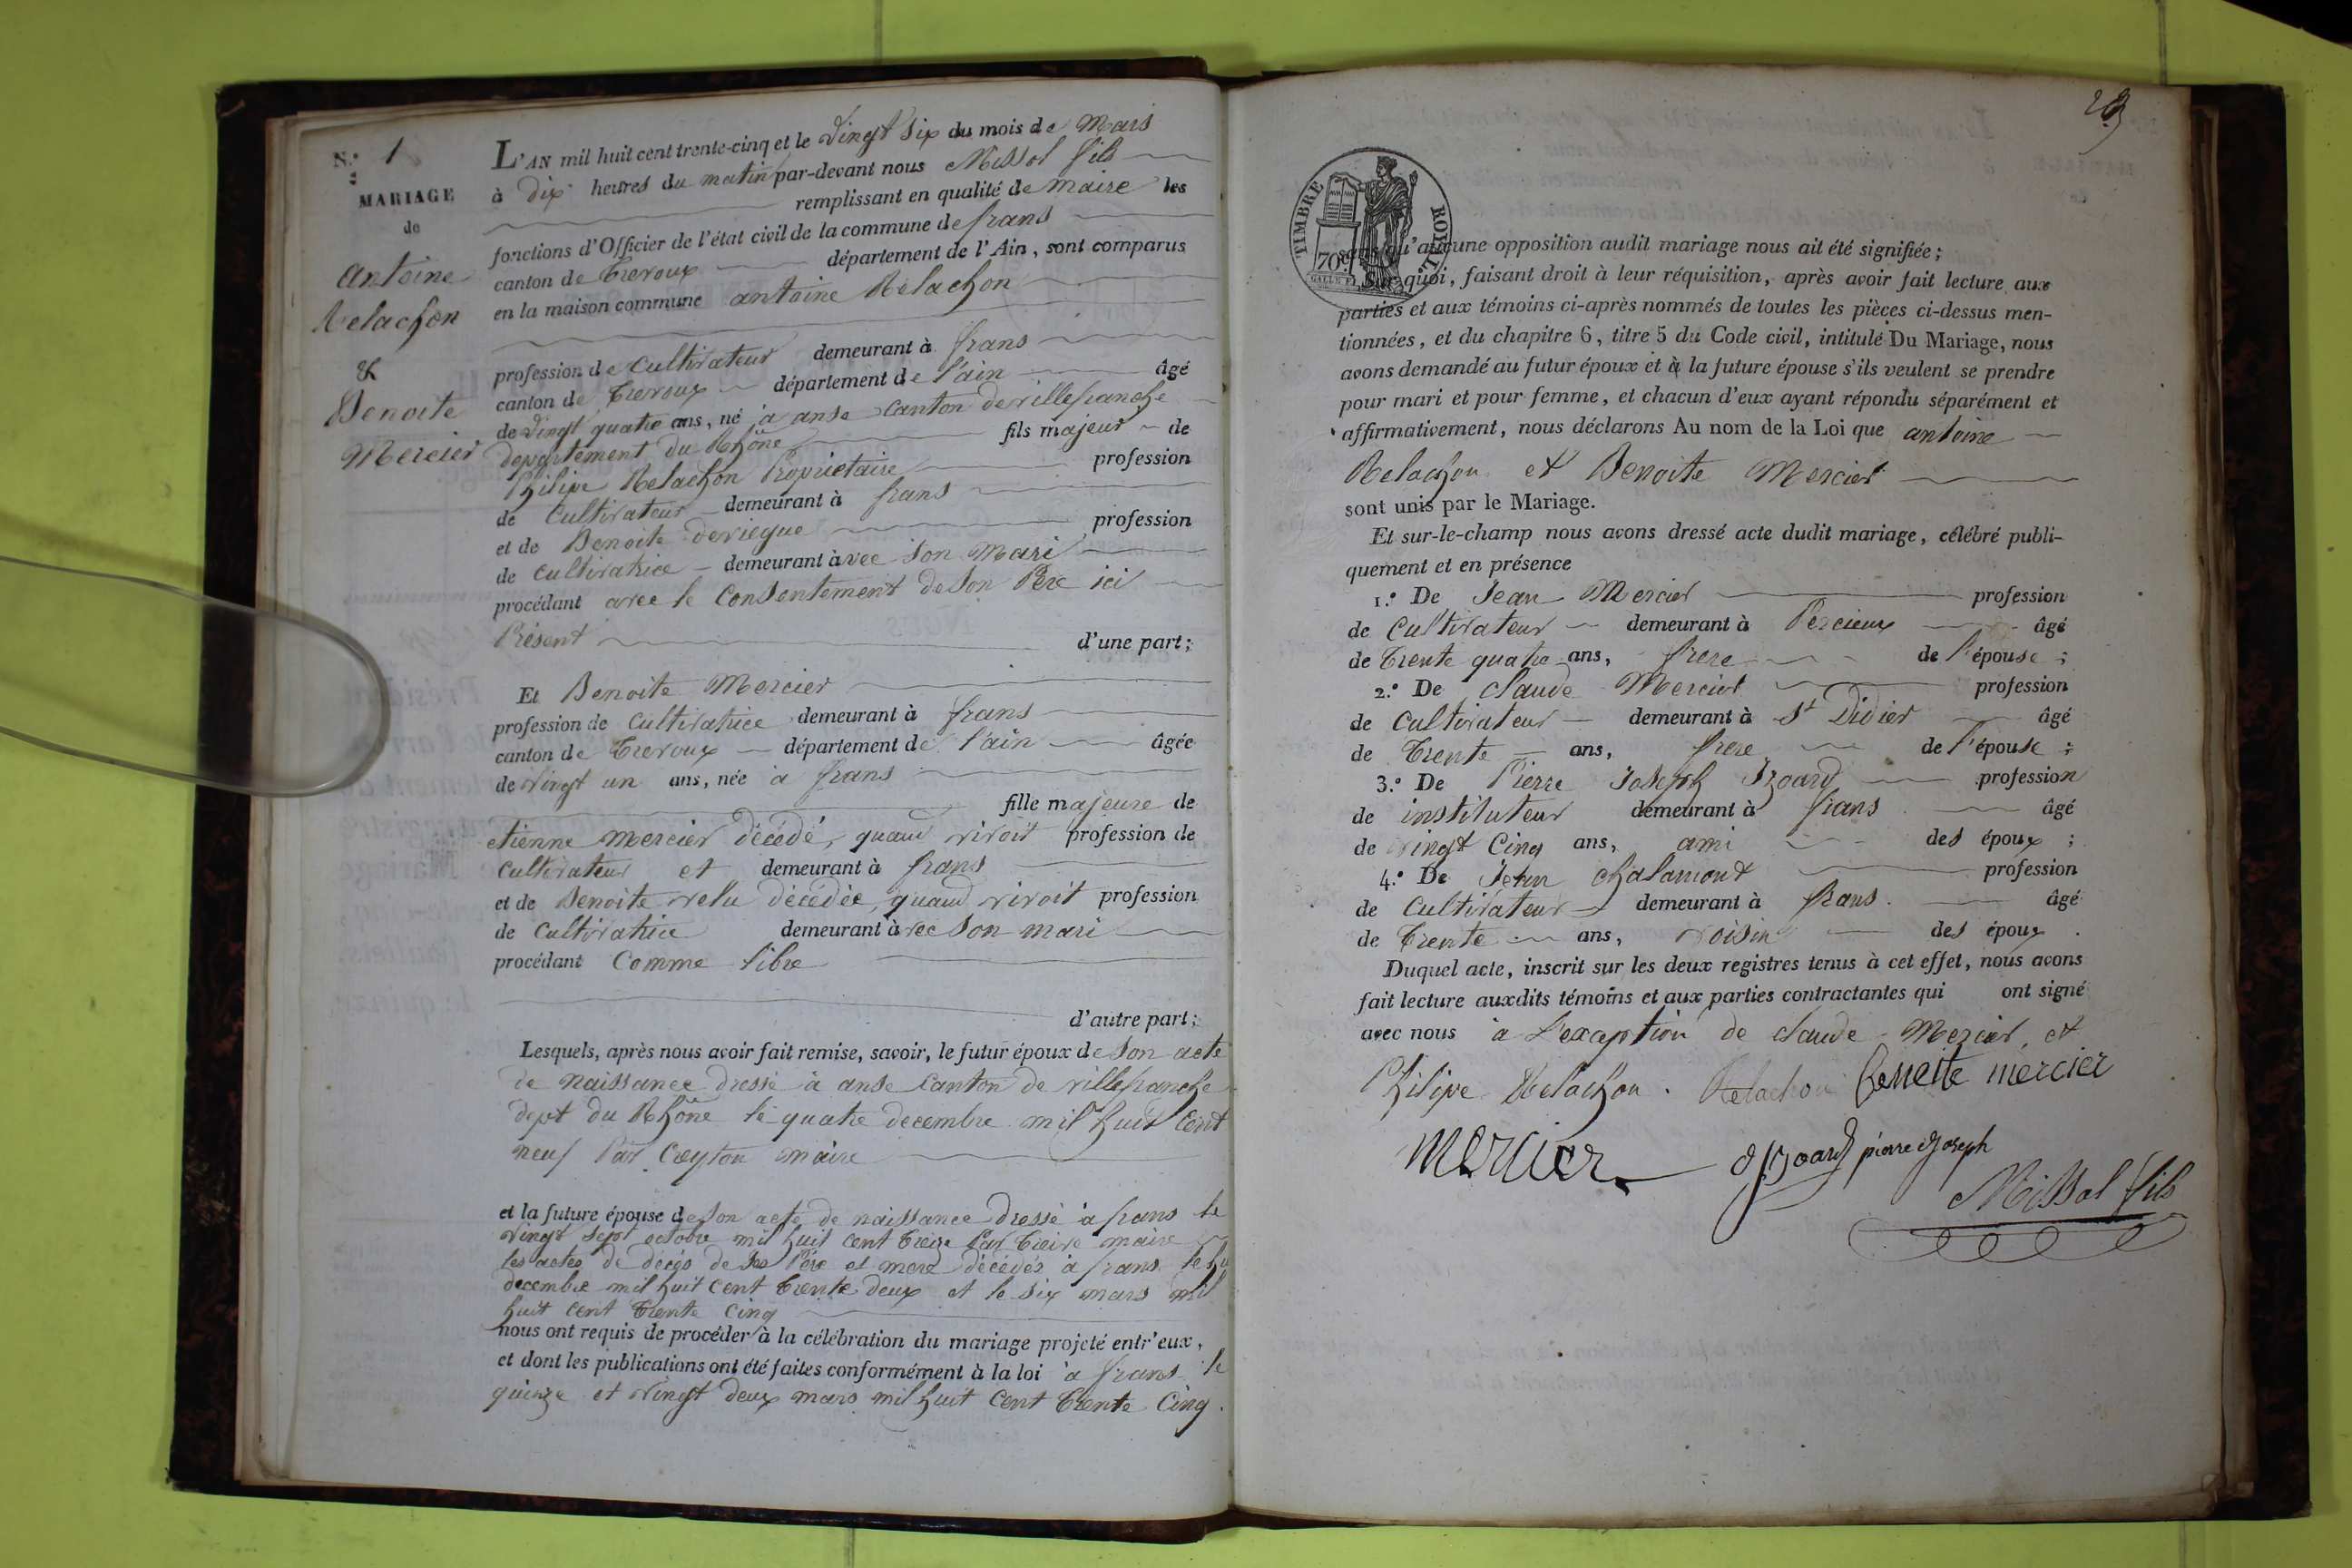 N.º 1
MARIAGE
de
antoine
Relachon
&
Benoite
Mercier
L'AN mil huit cent trente-cinq et le vingt six du mois de Mars
à dix heures du matin par-devant nous Missol fils
remplissant en qualité de maire les
fonctions d'Officier de l'état civil de la commune de frans
canton de trevoux département de l'Ain, sont comparus
en la maison commune antoine Relachon
profession de cultivateur demeurant à frans
canton de trevoux département de l'ain âgé
de vingt quatre ans, né à anse canton de villefranche
departement du Rhône fils majeur de
Philipe Relachon Propriétaire profession
de Cultivateur demeurant à frans
et de Benoite devieque profession
de cultivatrice demeurant avec son Mari
procédant avec le Consentement de son Père ici
Présent d'une part;
Et Benoite Mercier
profession de cultivatrice demeurant à frans
canton de trevoux département de l'ain âgée
de vingt un ans, née à frans
fille majeure de
etienne mercier décédé, quand vivoit profession de
cultivateur et demeurant à frans
et de Benoite velu décédée, quand vivoit profession
de cultivatrice demeurant avec son mari
procédant Comme libre
d'autre part;
Lesquels, après nous avoir fait remise, savoir, le futur époux de son acte
de naissance dressé à anse canton de villefranche
dept du Rhône le quatre decembre mil huit Cent
neuf Par maire
et la future épouse de son acte de naissance dressé à frans le
vingt sept octobre mil huit cent treize Par maire
les actes de décès de ses Père et mere décédés à frans le
decembre mil huit cent trente deux et le six mars mil
huit cent trente cinq
nous ont requis de procéder à la célébration du mariage projeté entr'eux,
et dont les publications ont été faites conformément à la loi à frans le
quinze et vingt deux mars mil huit cent trente Cinq.
TIMBRE ROYAL
70c
sans qu'aucune opposition audit mariage nous ait été signifiée;
Sur quoi, faisant droit à leur réquisition, après avoir fait lecture aux
parties et aux témoins ci-après nommés de toutes les pièces ci-dessus men-
tionnées, et du chapitre 6, titre 5 du Code civil, intitulé Du Mariage, nous
avons demandé au futur époux et à la future épouse s'ils veulent se prendre
pour mari et pour femme, et chacun d'eux ayant répondu séparément et
affirmativement, nous déclarons Au nom de la Loi que antoine
Relachon et Benoite Mercier
sont unis par le Mariage.
Et sur-le-champ nous avons dressé acte dudit mariage, célébré publi-
quement et en présence
1.º De Jean Mercier profession
de Cultivateur demeurant à Percieux âgé
de trente quatre ans, frere de l'épouse;
2.º De claude Mercier profession
de cultivateur demeurant à St Didier âgé
de trente ans, frere de l'épouse;
3.º De Pierre Joseph Izoard profession
de instituteur demeurant à frans âgé
de vingt Cinq ans, ami des époux;
4.º De Jean chalamont profession
de cultivateur demeurant à frans. âgé
de trente ans, voisin des époux.
Duquel acte, inscrit sur les deux registres tenus à cet effet, nous avons
fait lecture auxdits témoins et aux parties contractantes qui ont signé
avec nous à l'exception de claude Mercier, et
Philipe Relachon. Relachon Beneite mercier
mercier izoard pierre joseph
Missol fils